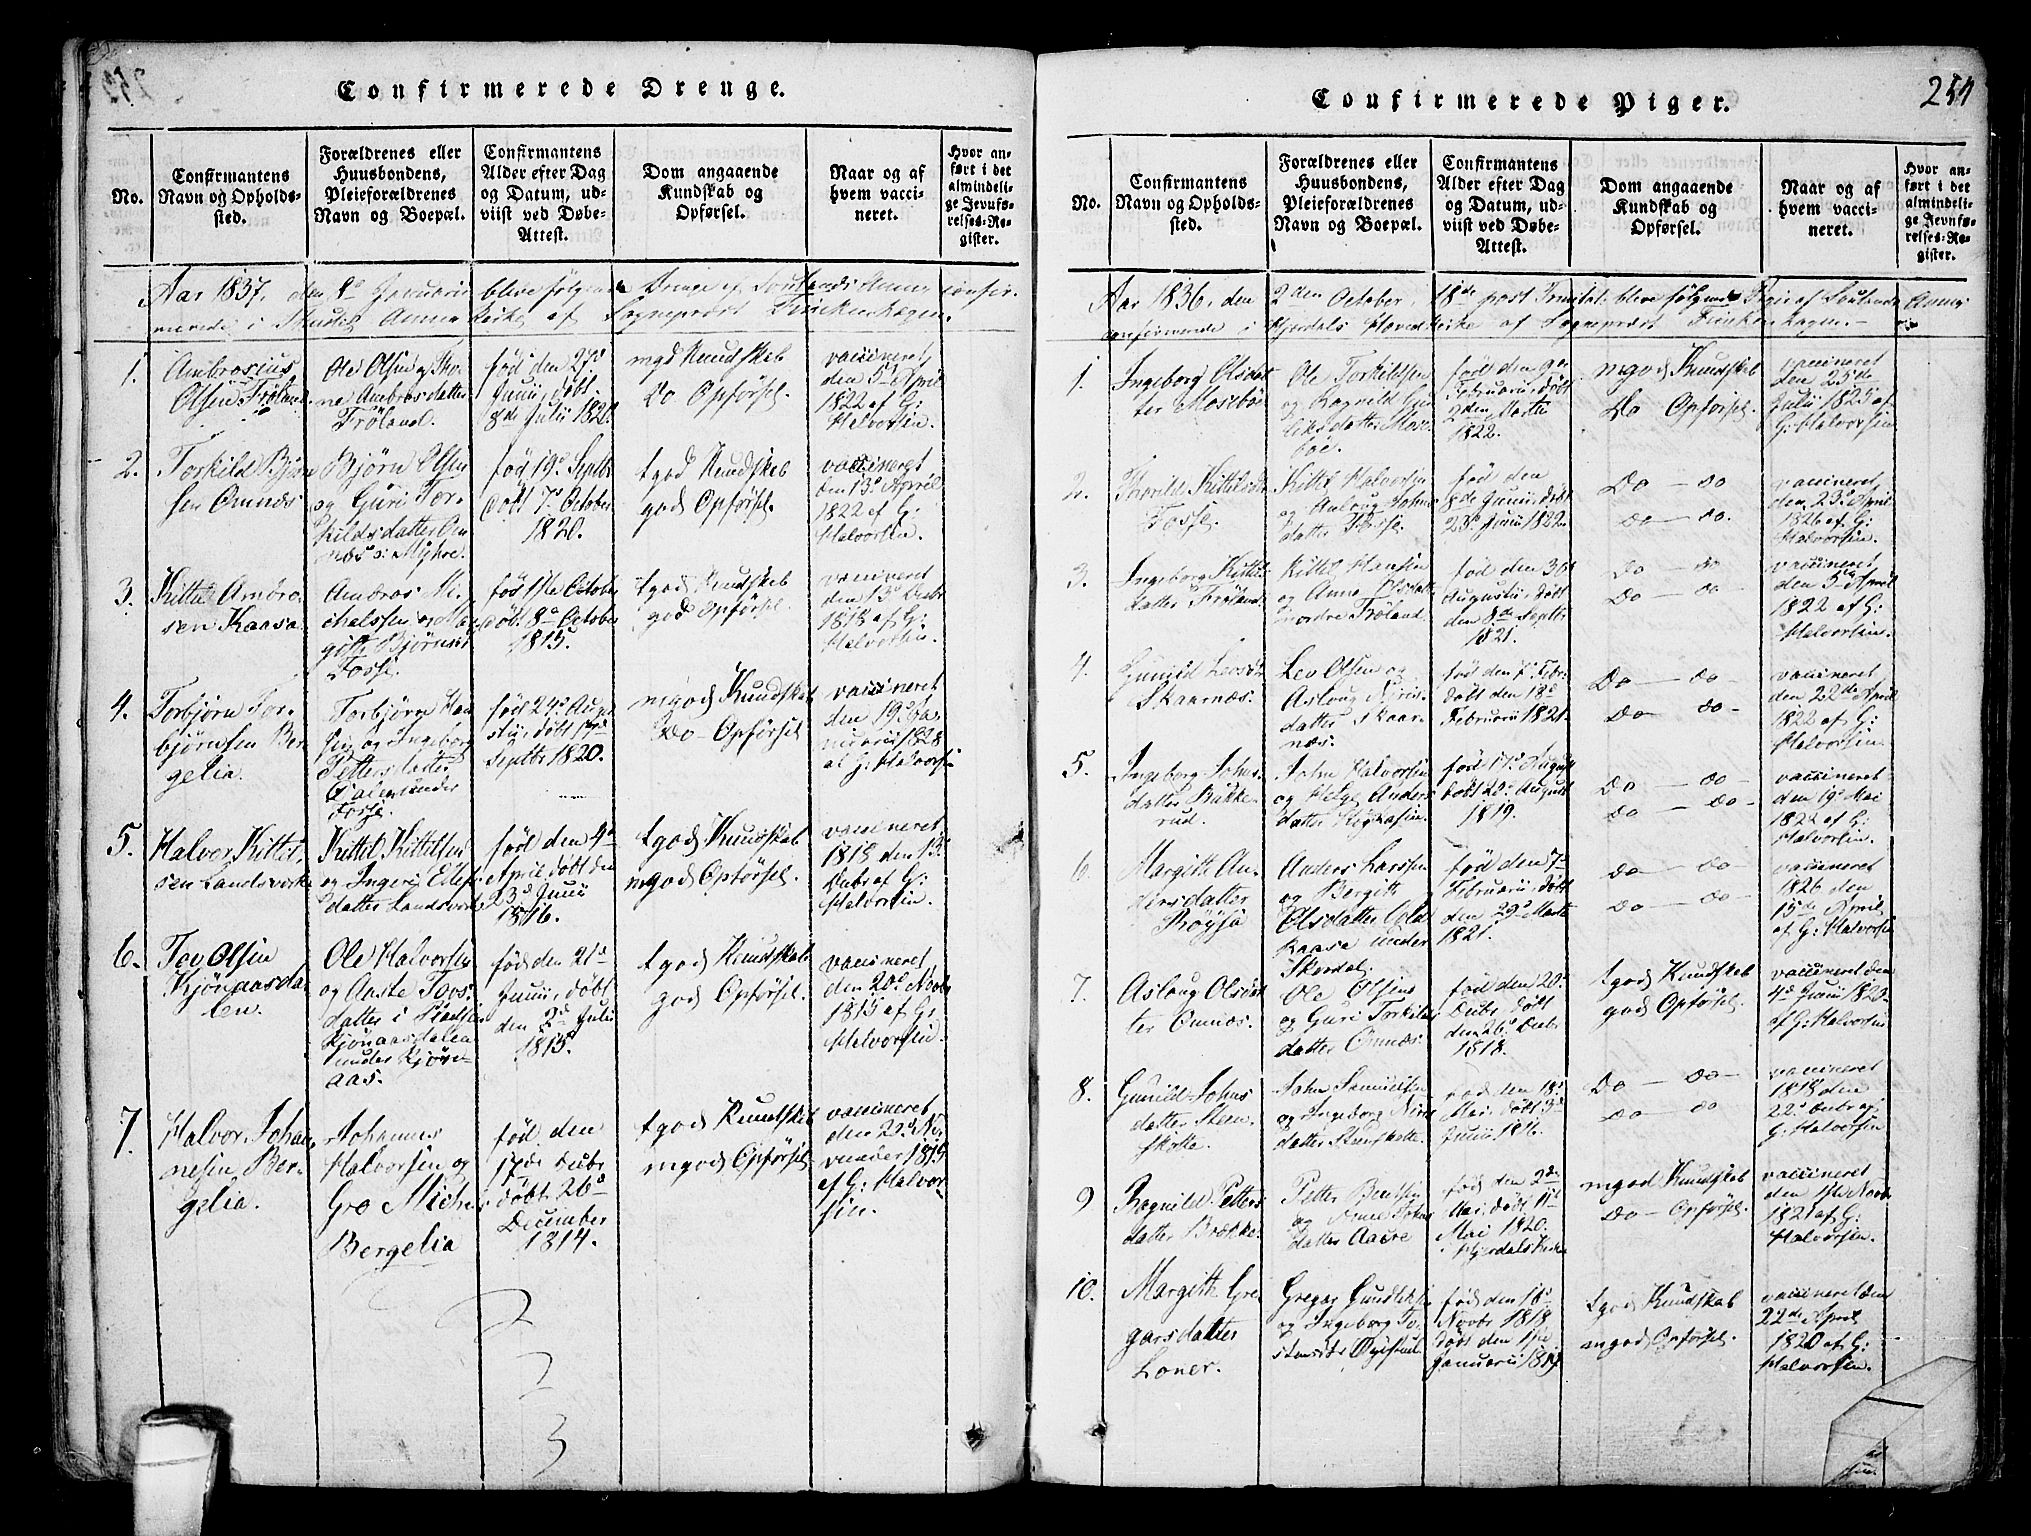 Confirmerede Drenge.
No.
Confirmantens
Navn og Opholds-
sted.
Forældrenes eller
Huusbondens,
Pleieforældrenes
Navn og Boepæl.
Confirmantens
Alder efter Dag
og Datum, ud-
viist ved Døbe-
Attest.
Dom angaaende
Kundskab og
Opførsel.
Naar og af
hvem vacci-
neret.
Hvor an-
ført i det
almindeli-
ge Jevnfø-
relses-Re-
gister.
Aar 1837, den Januarii bleve følgende Drenge af Annex confir-
merede i Annex Kirke af Sognepræst Finckenhagen.
1.
Ambrosius
Olsen Frøland
Ole Olsen og Tho-
ne Ambrosdatter
Frøland.
fød den 27de
Junii, døbt
8de Julii 1821.
mgod Kundskab
Do Opførsel.
vaccineret
den 5te April
1822 af G:
Halvorsen.
2.
Torkild Bjørn
sen Omnæs
Bjørn Olsen
og Guri Tor-
kildsdatter Om-
næs Myhre.
fød 19de Septbr
døbt 7de October
1820.
tgod Kundskab
god Opførsel.
vaccineret
den 13de April
1822 af G:
Halvorsen.
3.
Kittel Andro-
sen Kaasa
Andros Mi-
chelssen og Mar
gith Bjørnsd
Fosse.
fød 1ste October
døbt 8de October
1815.
tgod Kundskab
god Opførsel.
vaccineret
den 13de Decbr
1818 af G:
Halvorsen.
4.
Torbjørn Tor-
bjørnsen Ber-
gelia.
Torbjørn Han
sen og Ingeborg
Pettersdatter
under
Fosse.
fød 24de Augu
stii, døbt
Septbr 1820.
mgod Kundskab
Do Opførsel
vaccineret
den 19de Ja-
nuarii 1828
af G: Halvorsen
5.
Halvor Kittel-
sen Landsverk
Kittel Kittelsen
og Ingerj
datter Landsverk
fød den 9de
April, døbt den
23de Junii
1816.
tgod Kundskab
mgod Opførsel.
vaccineret
1818 den 13de
Decbr af G:
Halvorsen.
6.
Tov Olsen
Kjønaasda-
len.
Ole Halvorsen
og Aaste Tovs-
datter i
Kjønaasdalen
under Kjøn-
aas.
fød den 21de
Junii, døbt
den 2de Julii
1815.
tgod Kundskab
god Opførsel.
vaccineret
den 20de Novbr
1815 af G:
Halvorsen.
7.
Halvor Johan-
nesen Ber-
gelia.
Johannes
Halvorsen og
Gro Michels
Bergelia
fød den
17de Decbr
døbt 26de
December
1814.
tgod Kundskab
mgod Opførsel
vaccineret
den 22de No-
vember 1815
af G: Halvor-
sen.
2
2
3
Confirmerede Piger.
251
No.
Confirmantens
Navn og Opholds-
sted.
Forældrenes eller
Huusbondens,
Pleieforældrenes
Navn og Boepæl.
Confirmantens
Alder efter Dag
og Datum, ud-
viist ved Døbe-
Attest.
Dom angaaende
Kundskab og
Opførsel.
Naar og af
hvem vacci-
neret.
Hvor an-
ført i det
almindeli-
ge Jevnfø-
relses-Re-
gister.
Aar 1836, den 2den October, 18de post Trinitat: bleve følgende Piger af Annex
confirmerede i Hjerdals Hovedkirke af Sognepræst Finckenhagen.
1.
Ingeborg Olsdat
ter Moseboe
Ole Torkildsen
og Ragnild Gun
liksdatter Mose
boe.
fød den 9de
Februarii, døbt
2den Marts
1822.
mgod Kundskab
Do Opførsel.
vaccineret
den 25de
Julii 1823 af
G: Halvorsen.
2.
Thorild Kittilsd
Fosse.
Kittel Halvorsen
og Aaloug Johns
datter Fosse.
fød den
8de Junii, døbt
23de Junii 1822.
Do — do
do — do.
vaccineret
den 23de April
1826 af G:
Halvorsen.
3.
Ingeborg Kittils
datter Frøland.
Kittel Hansen
og Anne Olsdatter
nordre Frøland.
fød den 31te
Augustii, døbt
den 8de Septbr
1821.
Do — do
Do — do
vaccineret
den 5te April
1822 af G:
Halvorsen.
4.
Gunild Levsd
Skaarnæs.
Lev Olsen og
Aslaug
datter Skaar-
næs.
fød den Febr
døbt den 18de
Februarii 1821.
Do — do
Do — do
vaccineret
den 22de April
1822 af G:
Halvorsen.
5.
Ingeborg Johns-
datter Bakke-
rud.
John Halvorsen
og Helge Anders
datter
fød 17de August
døbt 22de August
1819.
Do — do
Do — do
vaccineret
den 19de Mai
1822 af G:
Halvorsen.
6.
Margith An-
dersdatter
Røysa
Anders Larssen
og Bergith
Olsdatter
Kaasa under
Skerdal.
fød den 7de
Februarii, døbt
den 29de Marts
1821.
Do — do
Do — do
vaccineret
1826 den
15de April
af G: Halvorsen
7.
Aslaug Olsdat
ter Omnæs.
Ole Olsen
og Guri Torkilds
datter Omnæs.
fød den 20de
Decbr. døbt
den 26de Decbr
1818.
tgod Kundskab
god Opførsel.
vaccineret den
4de Junii 1823.
af G: Halvorsen
8.
Gunild Johns
datter Steen-
skotte.
John Samuelsen
og Ingeborg
datter Steenskotte.
fød den 18de
Mai, døbt 3de
Junii 1816.
Do — do
do — do
vaccineret
1818 den
22de Decbr af
G: Halvorsen
9
Ragnild Petters
datter Brække.
Petter Bentsen
og Anne Johns
datter Aasre
fød den 2de
Mai, døbt 11te
Mai 1820.
i Hjerdals Kirke
mgod Kundskab
Do Opførsel.
vaccineret
den 16de Novbr
1821 af G:
Halvorsen.
10.
Margith Gre
garsdatter
Loner.
Gregar Gundleks
og Ingeborg To-
stensdtr Øystul
fød den 16de
Novbr 1818
døbt den 1ste
Januarii 1819
tgod Kundskab
mgod Opførsel.
vaccineret den
22de April
1820 af G:
Halvorsen.